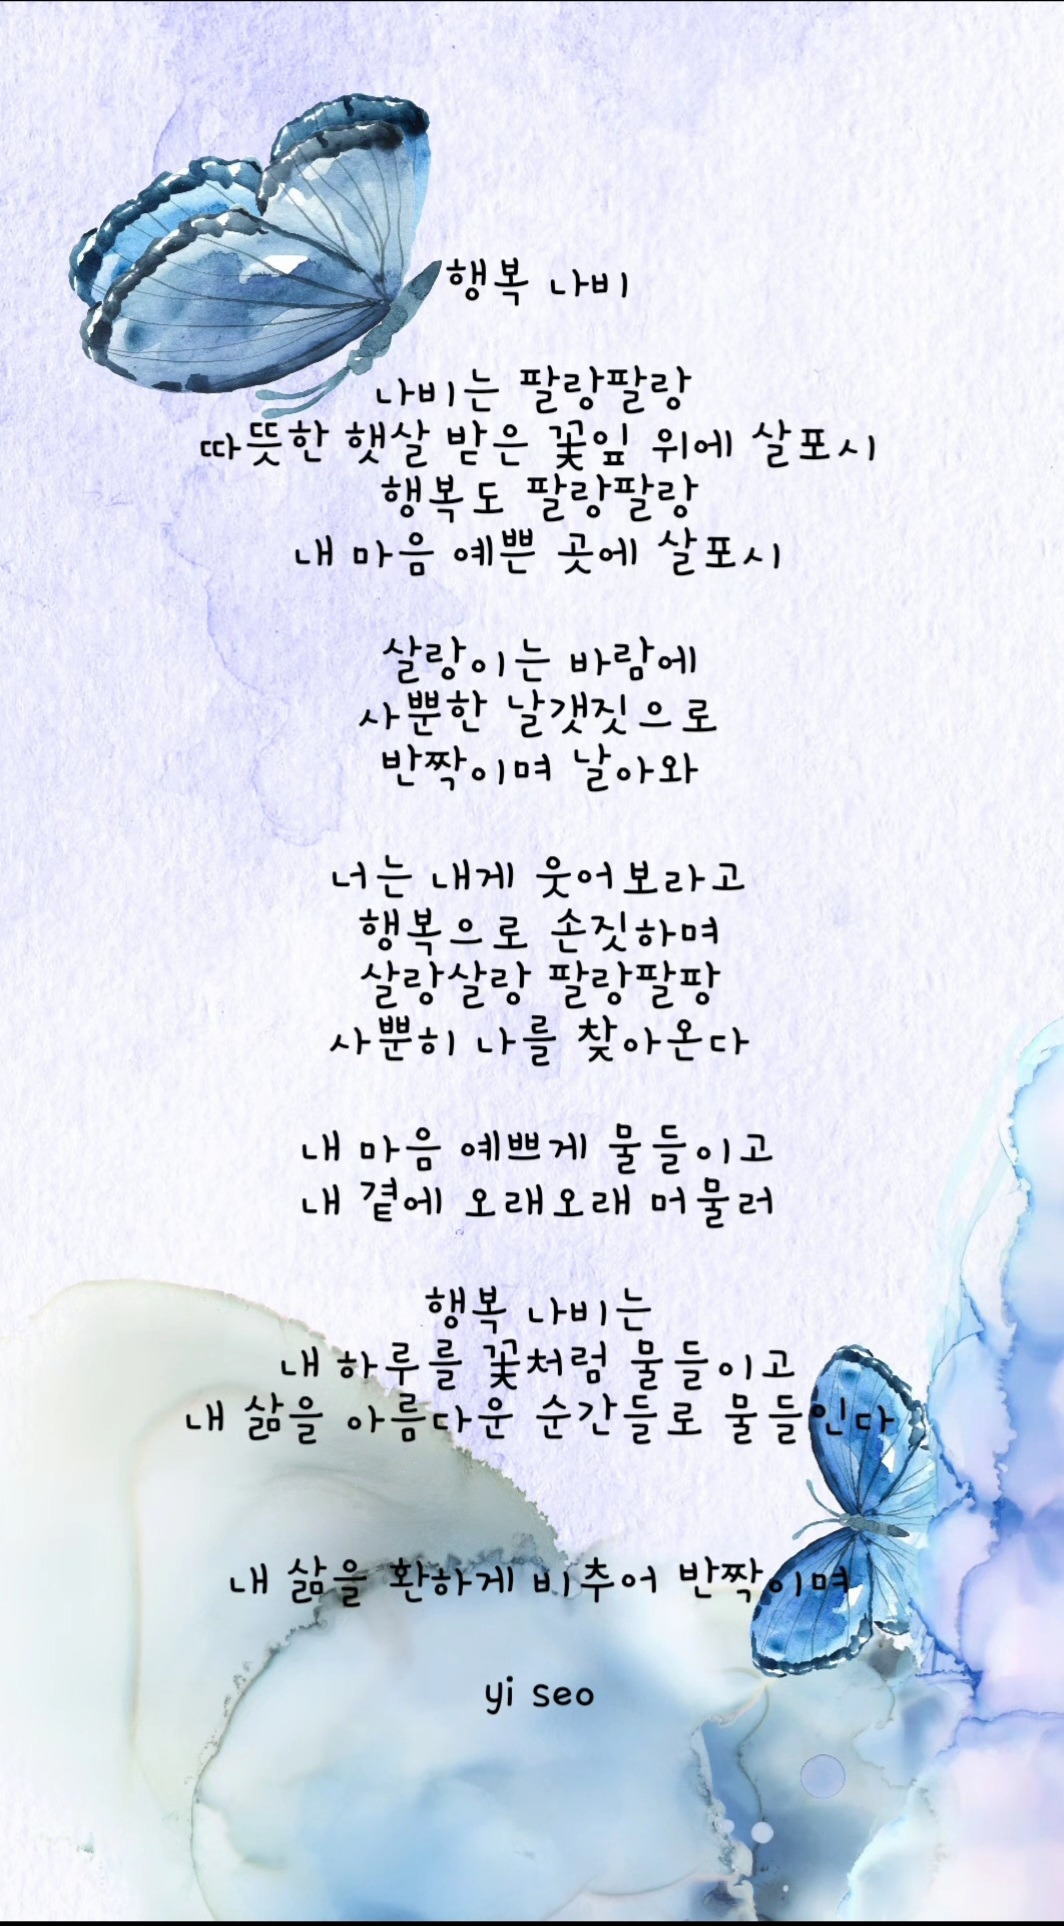 행복 나비
나비는 팔랑팔랑
따뜻한 햇살 받은 꽃잎 위에 살포시
행복도 팔랑팔랑
내 마음 예쁜 곳에 살포시
살랑이는 바람에
사뿐한 날갯짓으로
반짝이며 날아와
너는 내게 웃어보라고
행복으로 손짓하며
살랑살랑 팔랑팔팡
사뿐히 나를 찾아온다
내 마음 예쁘게 물들이고
내 곁에 오래오래 머물러
행복 나비는
내 하루를 꽃처럼 물들이고
내 삶을 아름다운 순간들로 물들인다
내 삶을 환하게 비추어 반짝이며
yi seo